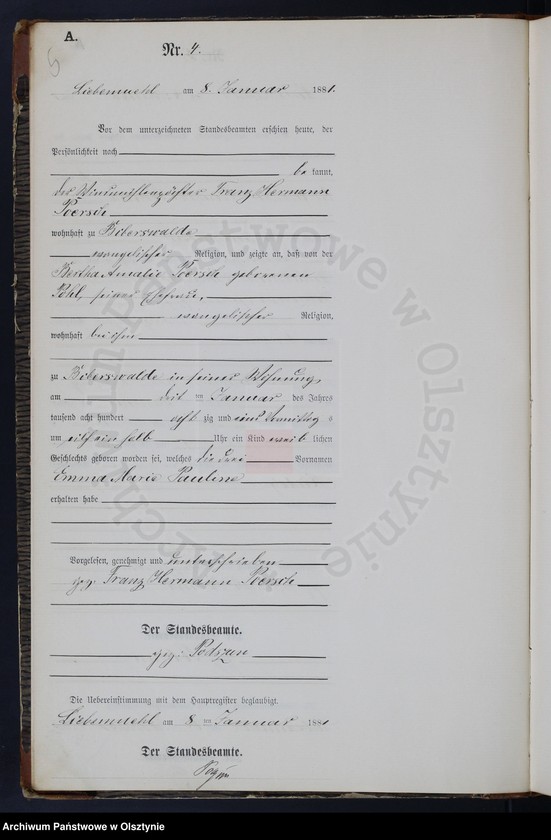 A.
5
Nr. 4.
Liebemuehl am 8. Januar 1881.
Vor dem unterzeichneten Standesbeamten erschien heute, der
Persönlichkeit nach
be kannt,
der Franz Hermann
Poersch
wohnhaft zu Biberswalde
evangelischer Religion, und zeigte an, daß von der
Bertha Amalie Poersch geborenen
Pohl, seiner Ehefrau,
evangelischer Religion,
wohnhaft bei ihm
zu Biberswalde in seiner Wohnung,
am drei ten Januar des Jahres
tausend acht hundert acht zig und eins Vormittag s
um elf ein halb Uhr ein Kind weib lichen
Geschlechts geboren worden sei, welches die drei Vornamen
Emma Marie Pauline
erhalten habe
Vorgelesen, genehmigt und unterschrieben
gez: Franz Hermann Poersch
Der Standesbeamte.
gez: Podszun
Die Uebereinstimmung mit dem Hauptregister beglaubigt.
Liebemuehl am 8 ten Januar 1881
Der Standesbeamte.
Archiwum Państwowe w Olsztynie
Archiwum Państwowe w Olsztynie